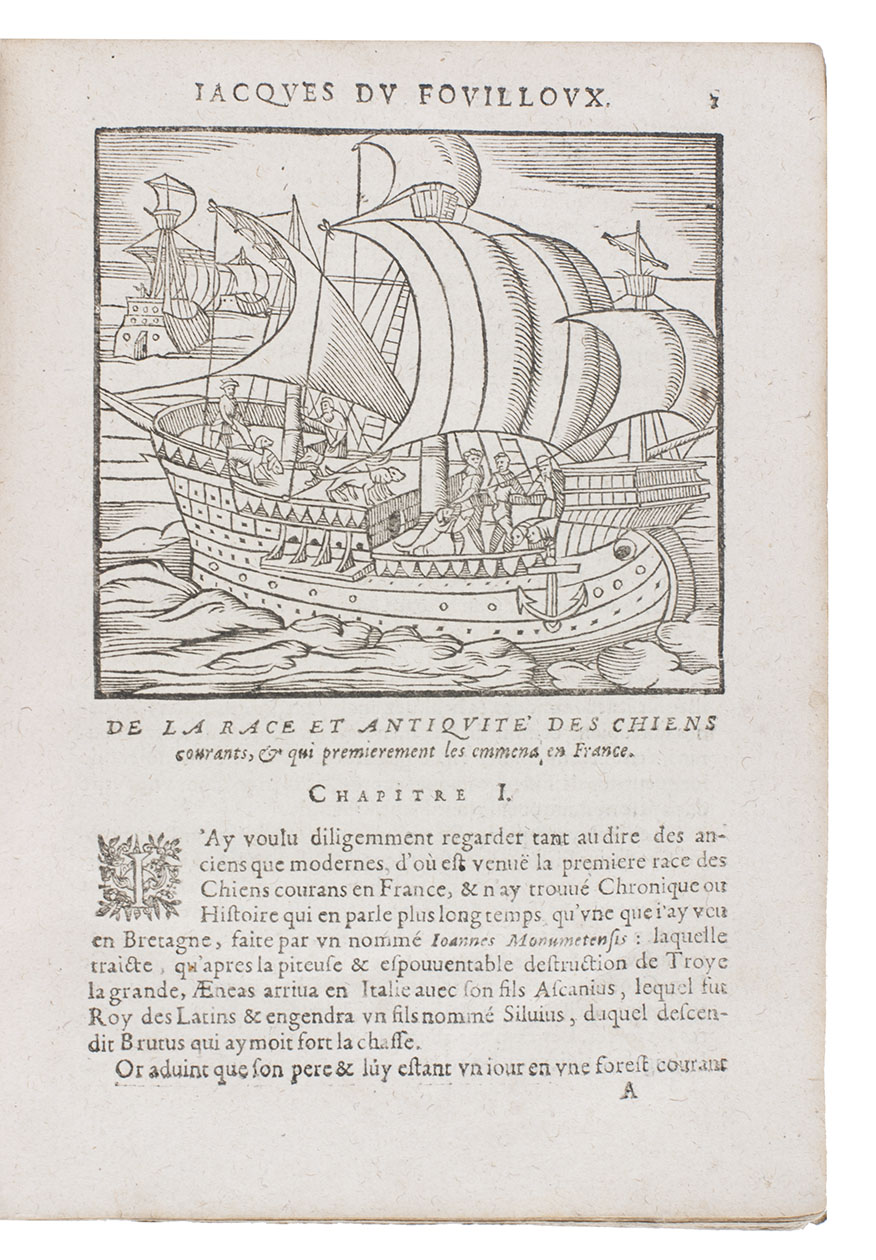 IACQVES DV FOVILLOVX.
DE LA RACE ET ANTIQVITE' DES CHIENS
courants, & qui premierement les emmena en France.
CHAPITRE I.
I'Ay voulu diligemment regarder tant au dire des an-
ciens que modernes, d'où eſt venuë la premiere race des
Chiens courans en France, & n'ay trouué Chronique ou
Hiſtoire qui en parle plus long temps qu'vne que i'ay veu
en Bretagne, faite par vn nommé Ioannes Monumetenſis : laquelle
traicte, qu'apres la piteuſe & eſpouuentable deſtruction de Troye
la grande, Æneas arriua en Italie auec ſon fils Aſcanius, lequel fut
Roy des Latins & engendra vn fils nommé Siluius, duquel deſcen-
dit Brutus qui aymoit fort la chaſſe.
Or aduint que ſon pere & lúy eſtant vn iour en vne foreſt courant
A